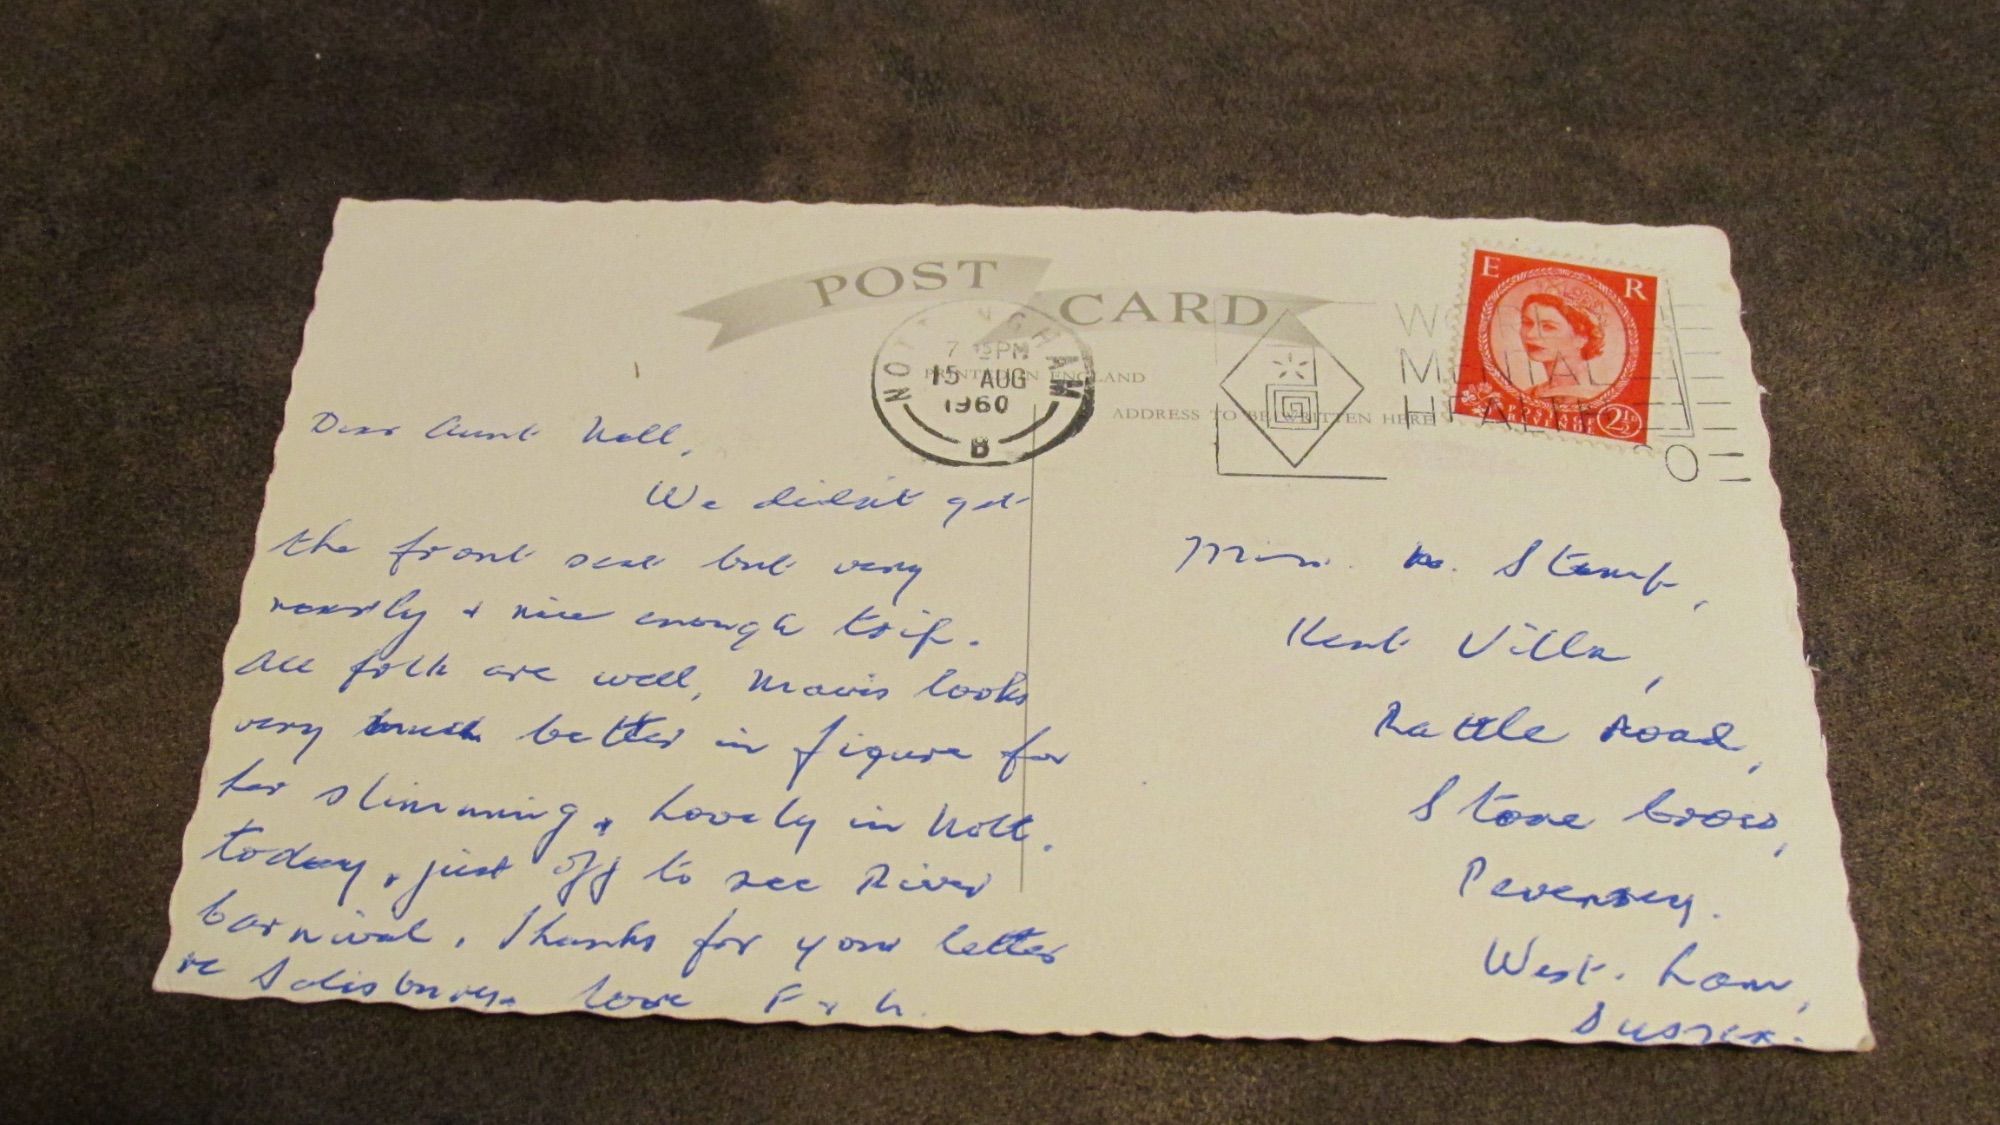 POST CARD
NOTTINGHAM
7 15 PM
15 AUG
1960
B
PRINTED IN ENGLAND
ADDRESS TO BE WRITTEN HERE
WORLD
MENTAL
HEALTH
E R
POSTAGE
REVENUE
2½D
Dear Aunt Nell,
We didn't get
the front seat but very
nearly & nice enough trip.
All folk are well, Mavis looks
very much better in figure for
her slimming. Lovely in Nott.
today, just off to see River
Carnival. Thanks for your letter
re Salisbury. Love F & h.
Miss. N. Stamp,
Kent Villa,
Rattle Road,
Stone Cross,
Pevensey.
West. ham,
Sussex.